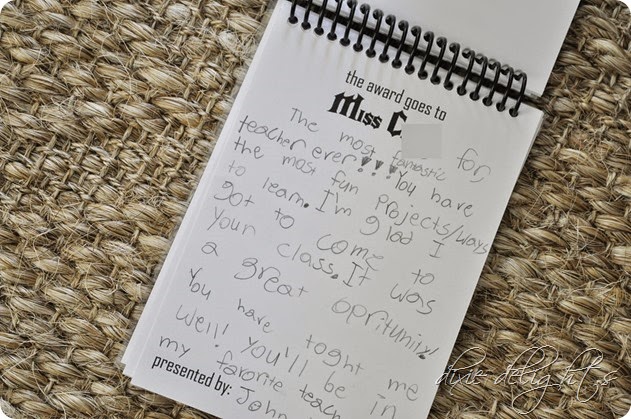 the award goes to
Miss C
The most fantastic for,
teacher ever!!! You have
the most fun Projects/ways
to learn. I'm glad I
got to come to
your class. It was
a great oprituniy!
You have toght me
well! You'll be in
my favorite teach
presented by: John
dixie delights